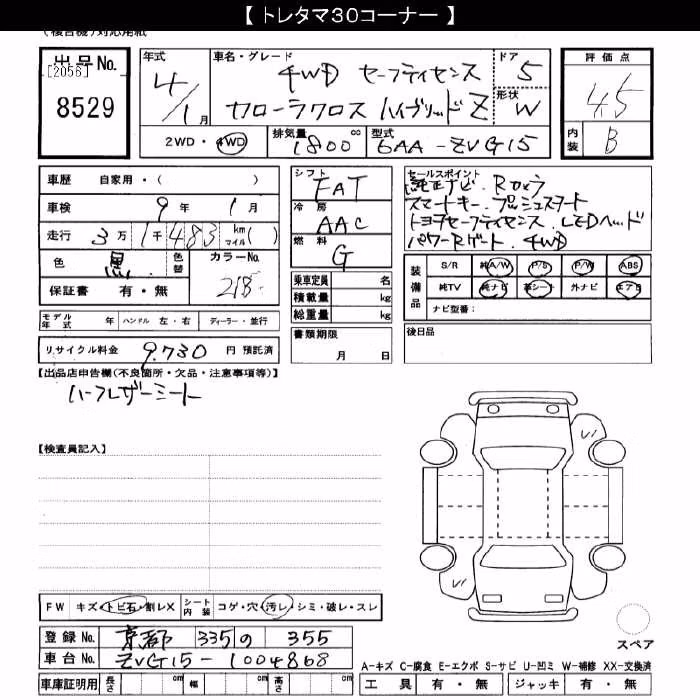 【 トレタマ30コーナー 】
(複合機)対応用紙
出品No.
[2056]
8529
年式
4/1月
車名・グレード
4WD セーフティセンス
カローラクロス ハイブリッドZ
ドア
5
形状
W
評価点
4.5
内装
B
2WD・4WD
排気量
1800 cc
型式
6AA-ZVG15
車歴 自家用・( )
車検 9年 1月
走行 3万1千483 km マイル( )
色 黒
色替
カラーNo.
218
保証書 有・無
シフト
FAT
冷房
AAC
燃料
G
乗車定員 名
積載量 kg
総重量 kg
書類期限
月 日
セールスポイント
純正ナビ. Rカメラ
スマートキー. プッシュスタート
トヨタセーフティセンス. LEDヘッド
パワーRゲート. 4WD
装備品
S/R 純A/W P/S P/W ABS
純TV 純ナビ 革シート 外ナビ エアB
ナビ型番:
後日品
モデル年式 年 ハンドル 左・右 ディーラー・並行
リサイクル料金 9,730 円 預託済
【出品店申告欄(不良箇所・欠品・注意事項等)】
ハーフレザーシート
【検査員記入】
FW キズ・トビ石・割レX
シート内装 コゲ・穴・汚レ・シミ・破レ・スレ
登録No. 京都 335の 355
車台No. ZVG15-1004868
車庫証明用 長さ cm 幅 cm 高さ cm
スペア
A-キズ C-腐食 E-エクボ S-サビ U-凹ミ W-補修 XX-交換済
工具 有・無 ジャッキ 有・無